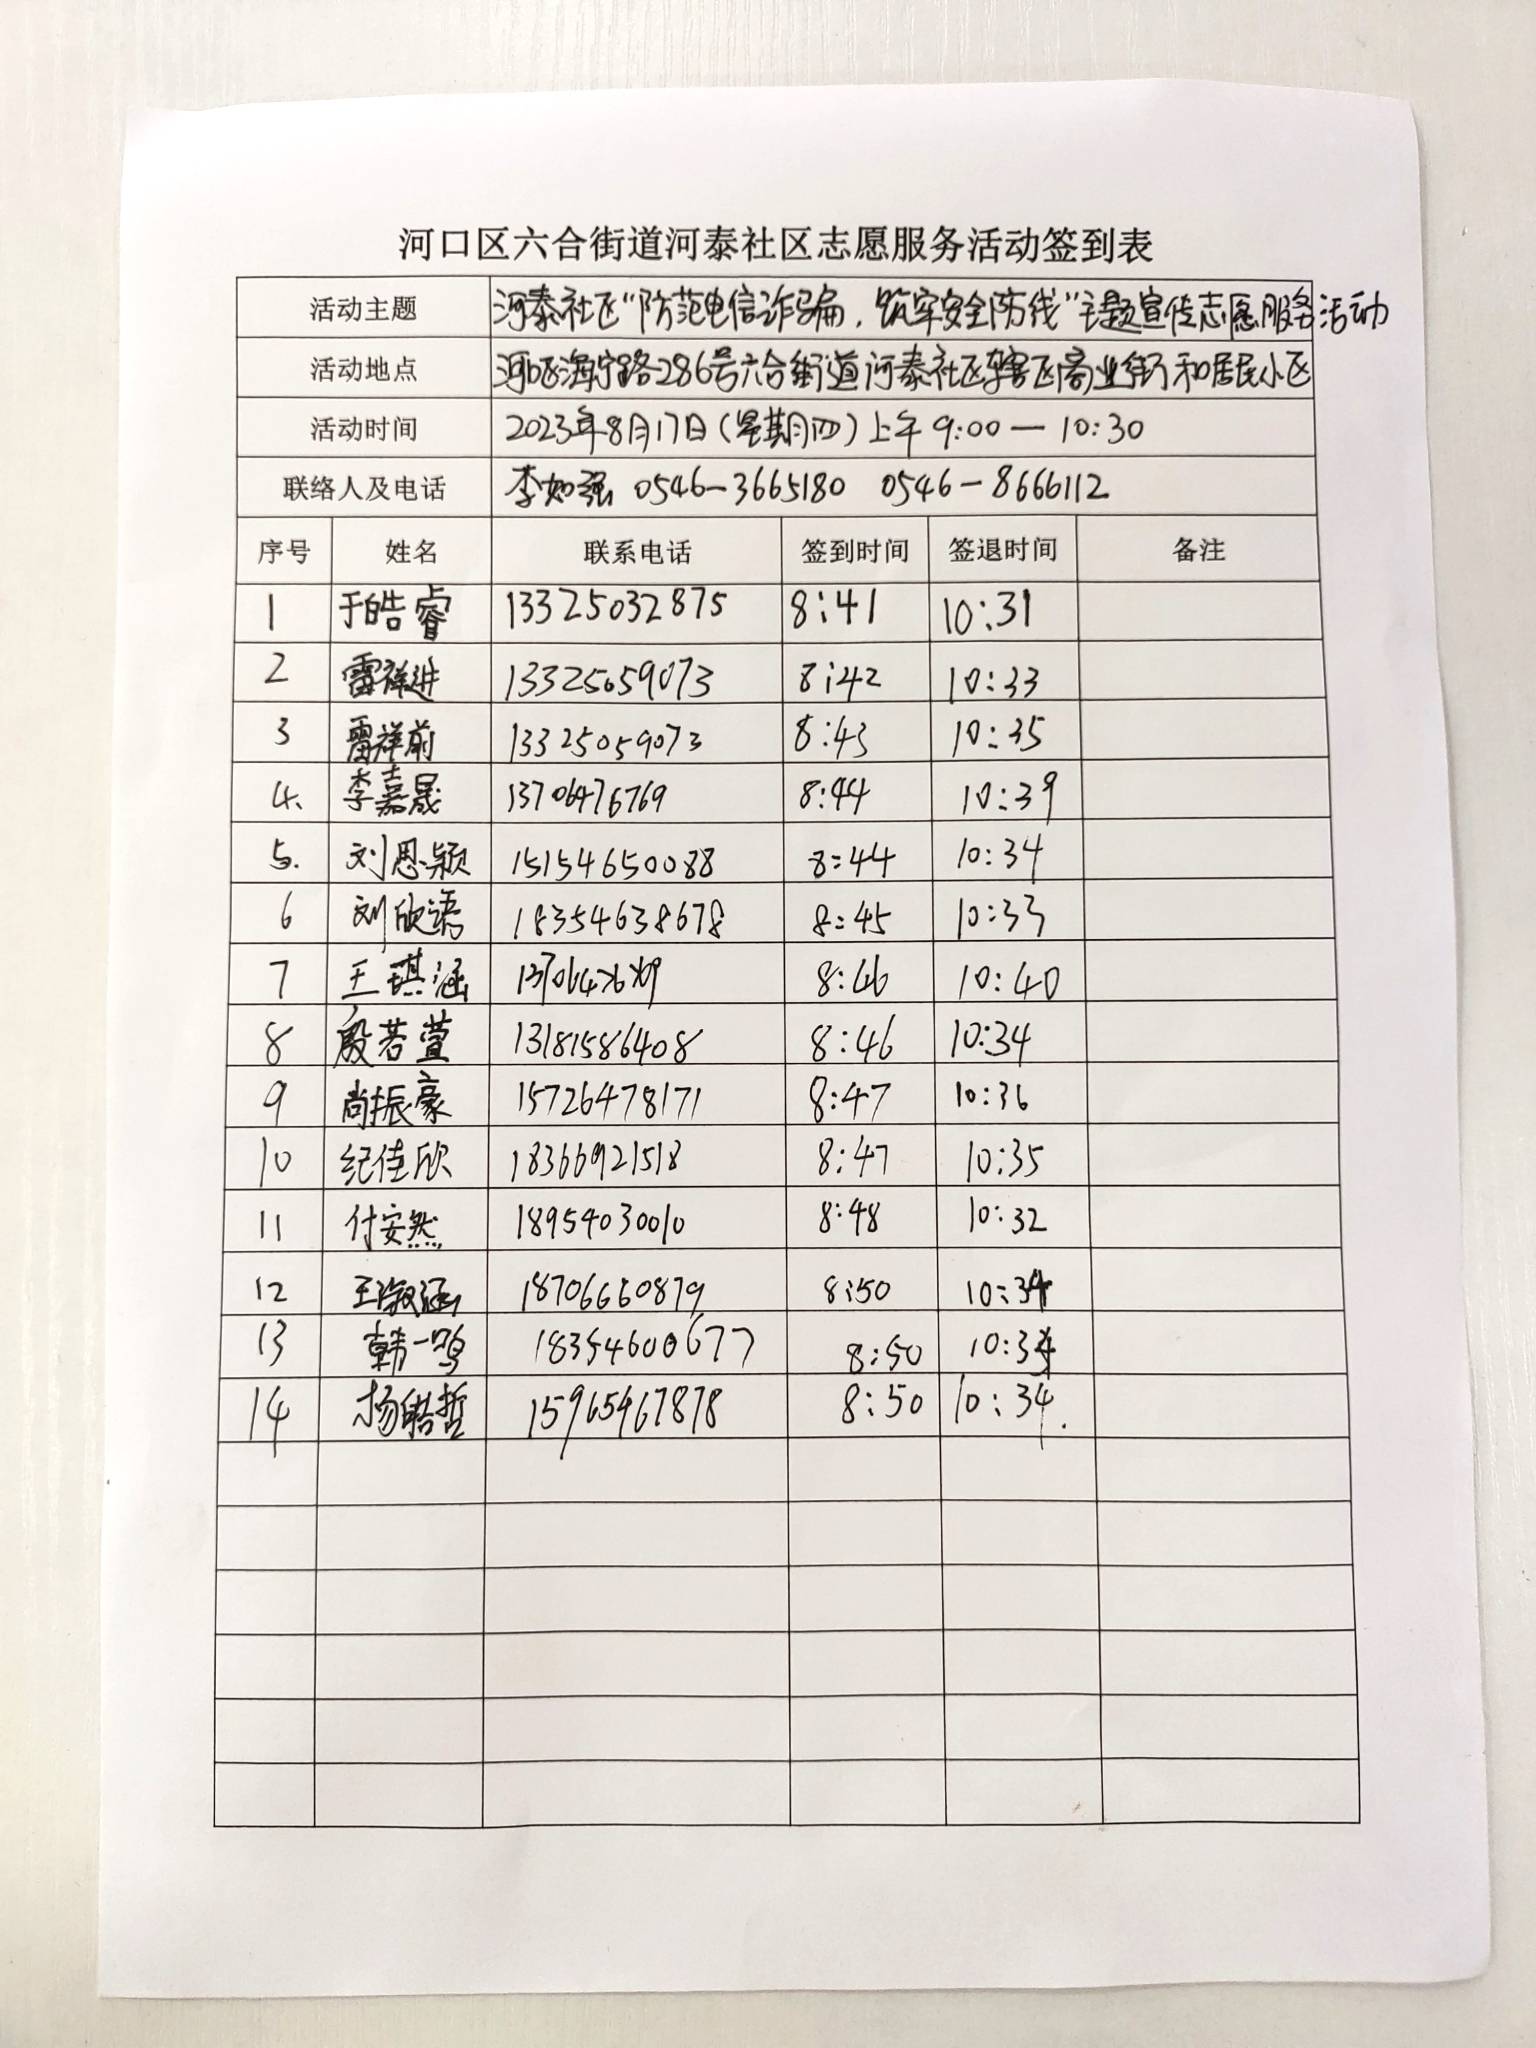 河口区六合街道河泰社区志愿服务活动签到表
活动主题 河泰社区“防范电信诈骗，筑牢安全防线”主题宣传志愿服务活动
活动地点 河口区海宁路286号六合街道河泰社区辖区商业街和居民小区
活动时间 2023年8月17日(星期四)上午9:00—10:30
联络人及电话 李如强 0546-3665180 0546-8666112
序号 姓名 联系电话 签到时间 签退时间 备注
1 于皓睿 13325032875 8:41 10:31
2 雷祥进 13325059073 8:42 10:33
3 雷祥前 13325059073 8:43 10:35
4. 李嘉晟 13706476769 8:44 10:39
5. 刘思颖 15154650088 8:44 10:34
6 刘欣语 18354638678 8:45 10:33
7 王琪涵 8:46 10:40
8 殷若萱 13181586408 8:46 10:34
9 尚振豪 15726478171 8:47 10:36
10 纪佳欣 18366921518 8:47 10:35
11 付安然 18954030010 8:48 10:32
12 王淑涵 18706660879 8:50 10:34
13 韩一鸣 18354600677 8:50 10:34
14 杨皓哲 15965467878 8:50 10:34.